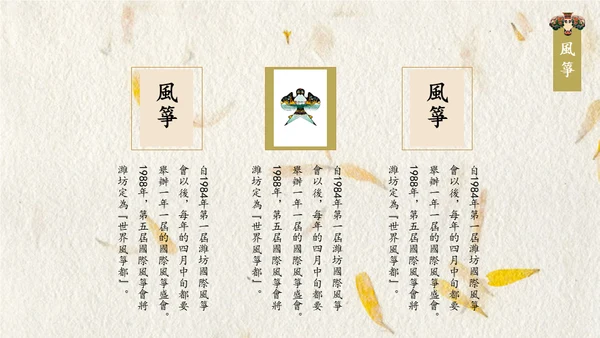 風箏
風箏
自1984年第一屆濰坊國際風箏
會以後，每年的四月中旬都要
舉辦一年一屆的國際風箏盛會。
1988年，第五屆國際風箏會將
濰坊定為『世界風箏都』。
自1984年第一屆濰坊國際風箏
會以後，每年的四月中旬都要
舉辦一年一屆的國際風箏盛會。
1988年，第五屆國際風箏會將
濰坊定為『世界風箏都』。
風箏
自1984年第一屆濰坊國際風箏
會以後，每年的四月中旬都要
舉辦一年一屆的國際風箏盛會。
1988年，第五屆國際風箏會將
濰坊定為『世界風箏都』。